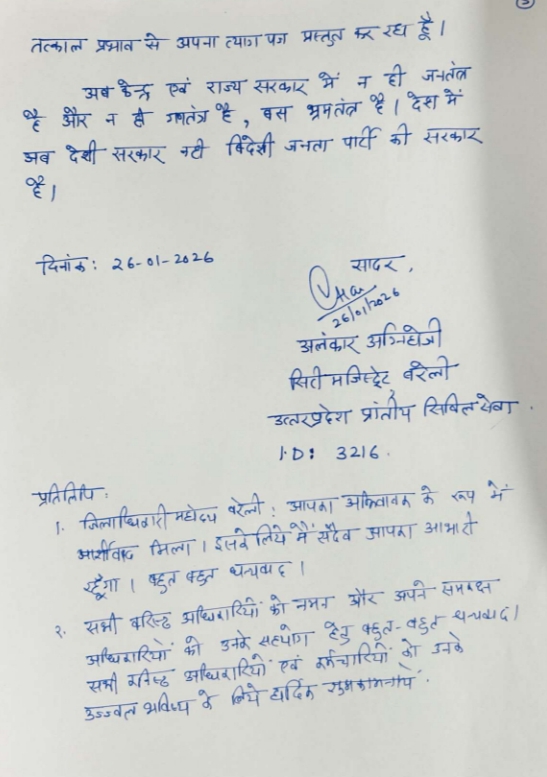 3
तत्काल प्रभाव से अपना त्याग पत्र प्रस्तुत कर रहा हूँ।
अब केन्द्र एवं राज्य सरकार में न ही जनतंत्र
है और न ही गणतंत्र है, बस भ्रमतंत्र है। देश में
अब देशी सरकार नही विदेशी जनता पार्टी की सरकार
है।
दिनांक: 26-01-2026
सादर,
26/01/2026
अलंकार अग्निहोत्री
सिटी मजिस्ट्रेट बरेली
उत्तरप्रदेश प्रांतीय सिविल सेवा.
I.D: 3216.
प्रतिलिपि:
1. जिलाधिकारी महोदय बरेली: आपका अभिवावक के रूप में
आर्शीवाद मिला। इसके लिये मैं सदैव आपका आभारी
रहूँगा। बहुत बहुत धन्यवाद।
2. सभी वरिष्ठ अधिकारियों को नमन और अपने समकक्ष
अधिकारियों को उनके सहयोग हेतु बहुत-बहुत धन्यवाद।
सभी कनिष्ठ अधिकारियों एवं कर्मचारियों को उनके
उज्जवल भविष्य के लिये हार्दिक शुभकामनायें.